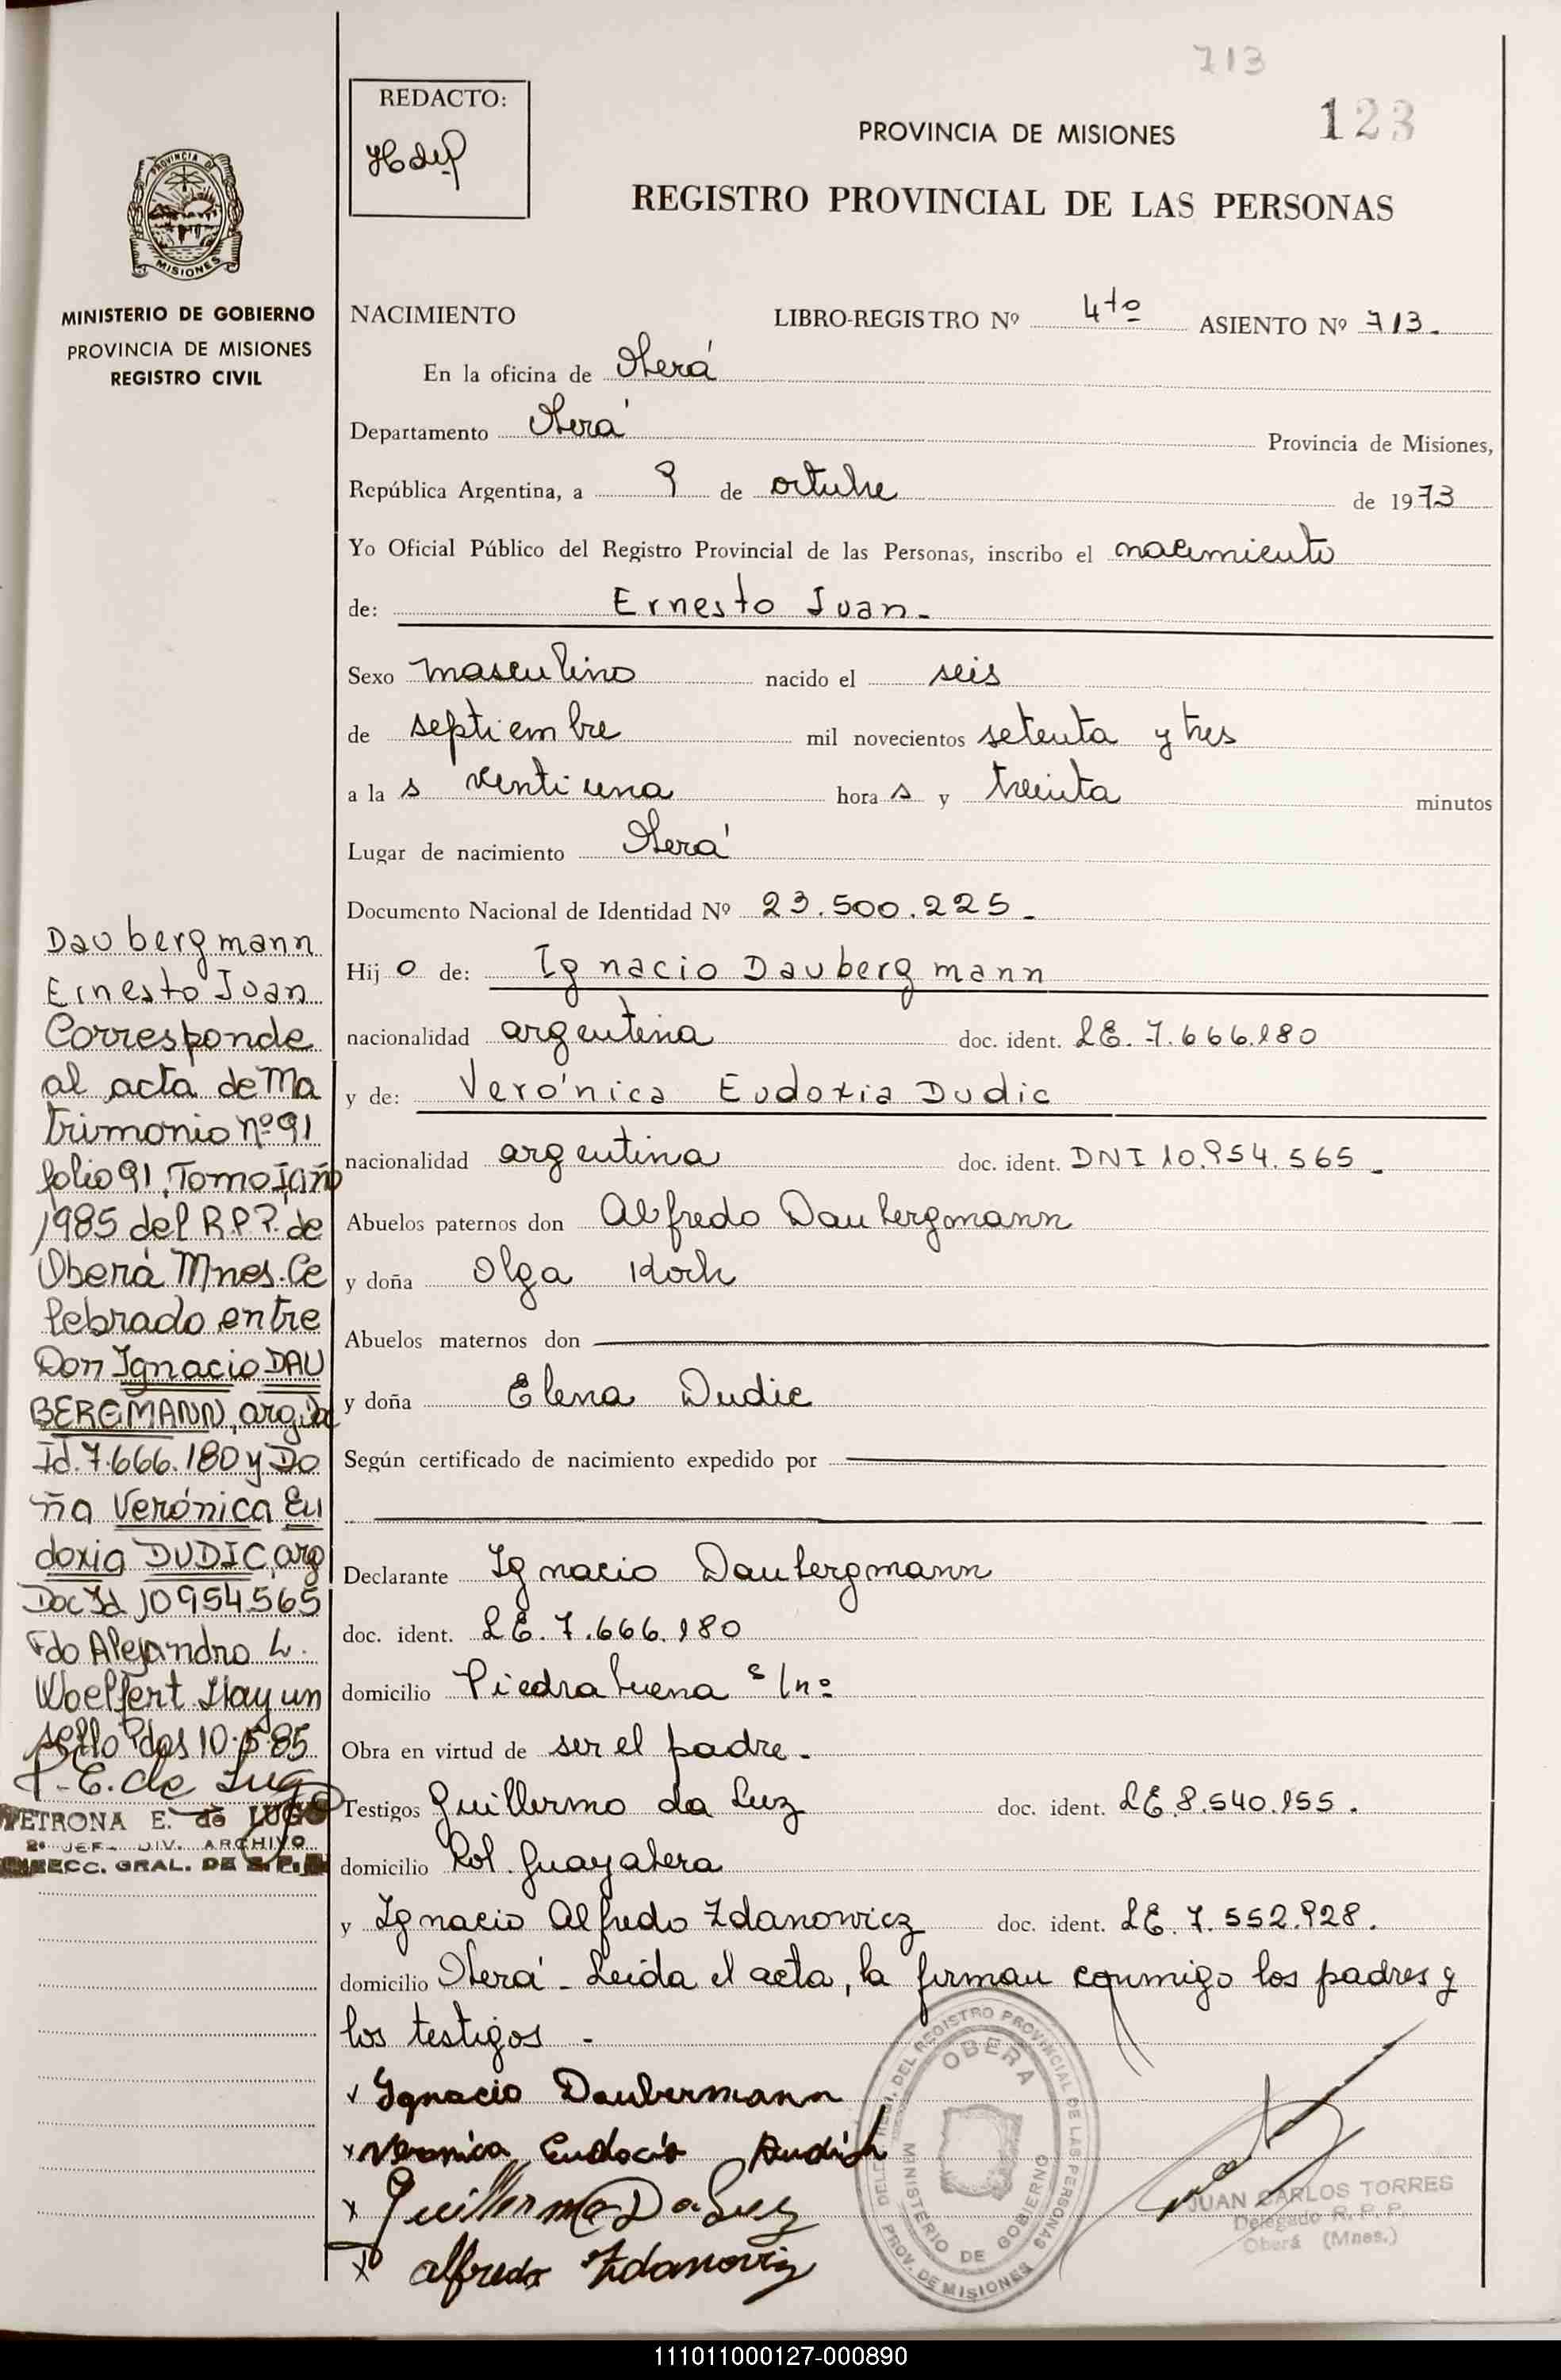 713
123
REDACTO:
PROVINCIA DE MISIONES
REGISTRO PROVINCIAL DE LAS PERSONAS
PROVINCIA DE
MISIONES
MINISTERIO DE GOBIERNO
PROVINCIA DE MISIONES
REGISTRO CIVIL
NACIMIENTO LIBRO-REGISTRO Nº 4to ASIENTO Nº 713.
En la oficina de Oberá
Departamento Oberá Provincia de Misiones,
República Argentina, a 9 de octubre de 1973
Yo Oficial Público del Registro Provincial de las Personas, inscribo el nacimiento
de: Ernesto Juan.
Sexo masculino nacido el seis
de septiembre mil novecientos setenta y tres
a las ventiuna horas y treinta minutos
Lugar de nacimiento Oberá
Documento Nacional de Identidad Nº 23.500.225.
Hijo de: Ignacio Daubergmann
nacionalidad argentina doc. ident. LE. 7.666.180
y de: Verónica Eudoxia Dudic
nacionalidad argentina doc. ident. DNI 10.954.565.
Abuelos paternos don Alfredo Daubergmann
y doña Olga Koch
Abuelos maternos don
y doña Elena Dudic
Según certificado de nacimiento expedido por
Declarante Ignacio Daubergmann
doc. ident. LE. 7.666.180
domicilio Piedrabuena s/nº
Obra en virtud de ser el padre.
Testigos Guillermo da Luz doc. ident. LE. 8.540.155.
domicilio Pol. Guayabera
y Ignacio Alfredo Zdanowicz doc. ident. LE. 7.552.928.
domicilio Oberá - Leída el acta, la firman conmigo los padres y
los testigos -
Ignacio Daubermann
x Veronica Eudocia Dudich
x Guillermo Da Luz
x Alfredo Zdanoviz
Daubergmann
Ernesto Juan
Corresponde
al acta de Ma
trimonio nº 91
folio 91, Tomo I año
1985 del R.P.P. de
Oberá Mnes. Ce
lebrado entre
Don Ignacio DAU
BERGMANN, arg. Doc
Id. 7.666.180 y Do
ña Verónica Eu
doxia DUDIC, arg
Doc Id 10954565
Fdo Alejandro L.
Woelfert Hay un
sello Pdas 10.5.85
P. E. de Lugo
PETRONA E. de LUGO
2º JEF. DIV. ARCHIVO
DIRECC. GRAL. DE R. P. P.
DEL REGISTRO PROVINCIAL DE LAS PERSONAS
OBERA
MINISTERIO DE GOBIERNO
PROV. DE MISIONES
JUAN CARLOS TORRES
Delegado R. P. P.
Oberá (Mnes.)
111011000127-000890